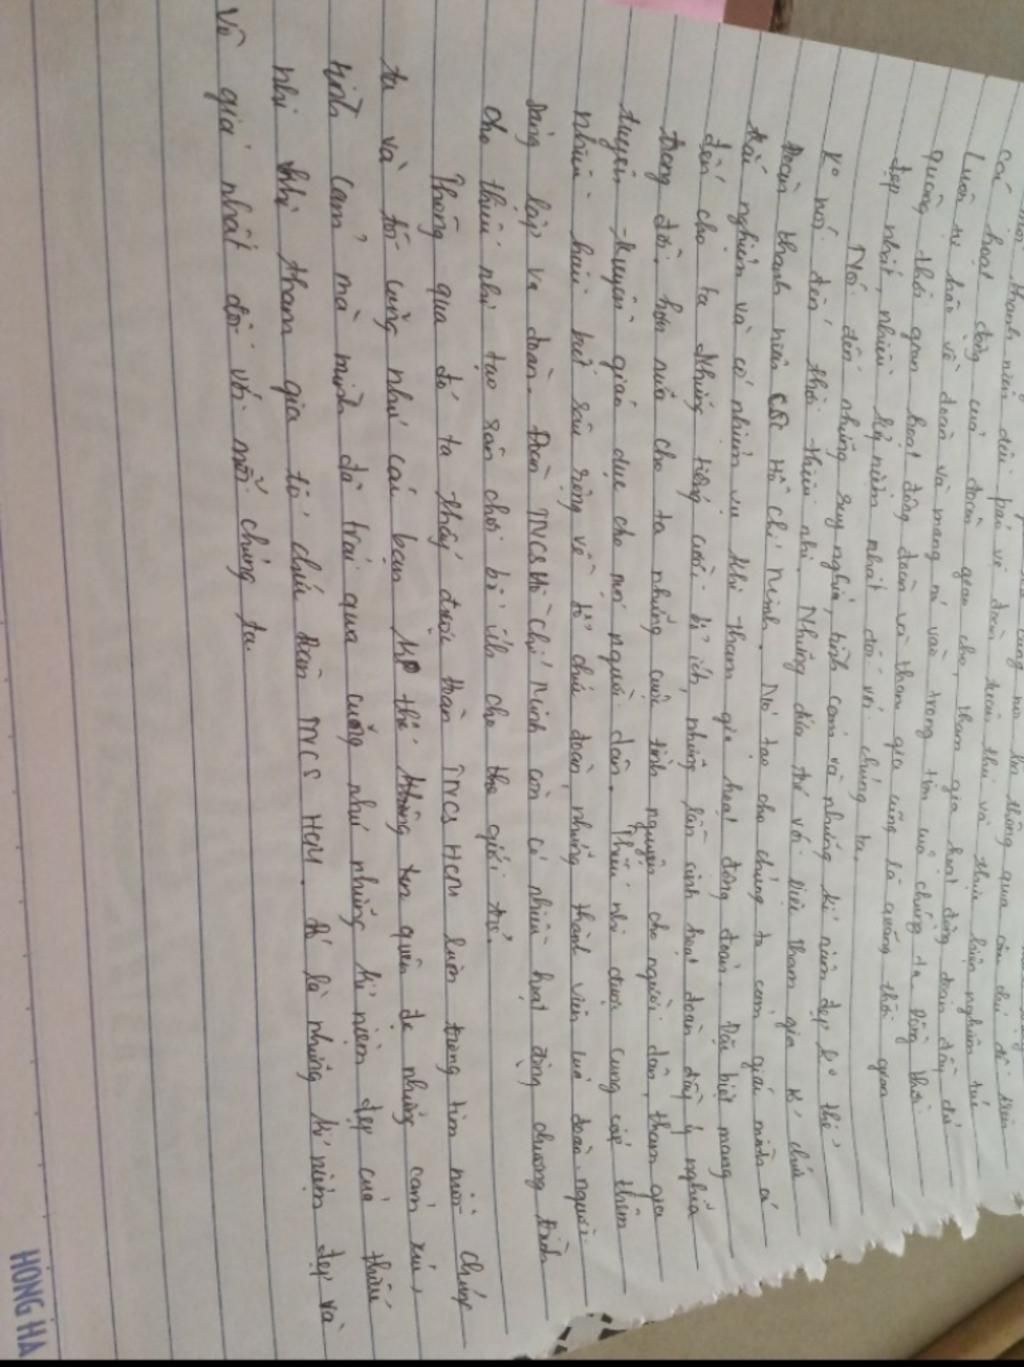 thanh niên đều
Các hoạt động của đoàn giao cho, tham gia hoạt động đoàn đầy đủ
Luôn tự hào về đoàn và mang nó vào trong tim của chúng ta đồng thời
quãng thời gian hoạt động đoàn và tham gia cũng là quãng thời gian
đẹp nhất, nhiều kỷ niệm nhất đối với chúng ta.
Nói đến những suy nghĩ, tình cảm và những kỉ niệm đẹp ko thể
ko nói đến thời thiếu nhi. Những đứa trẻ với tham gia
Đoàn thanh niên CS Hồ Chí Minh. Nó tạo cho chúng ta cảm giác mình có
nghiệm và có nhiệm vụ khi tham gia hoạt động đoàn. Đặc biệt mang
đến cho ta những tiếng cười bổ ích, những lần sinh hoạt đoàn đầy ý nghĩa
trong đời, hơn nữa cho ta những cuộc tình nguyện cho người dân, tham gia
tuyên truyền giáo dục cho mọi người dân. Thiếu nhi được cung cấp thêm
nhiều hiểu biết sâu rộng về tổ chức đoàn, những thành viên của đoàn, người
sáng lập ra đoàn. Đoàn TNCS Hồ Chí Minh còn có nhiều hoạt động chương trình
cho thiếu nhi tạo sân chơi bổ ích cho thế giới trẻ.
Thông qua đó ta thấy được Đoàn TNCS HCM luôn trong tim mỗi chúng
ta và tôi cũng như các bạn không thể quên đi những cảm xúc,
tình cảm mà mình đã trải qua cũng như những kỉ niệm đẹp của thiếu
nhi khi tham gia tổ chức Đoàn TNCS HCM. đó là những kỉ niệm đẹp và
vô giá nhất đối với mỗi chúng ta.
HONG HA